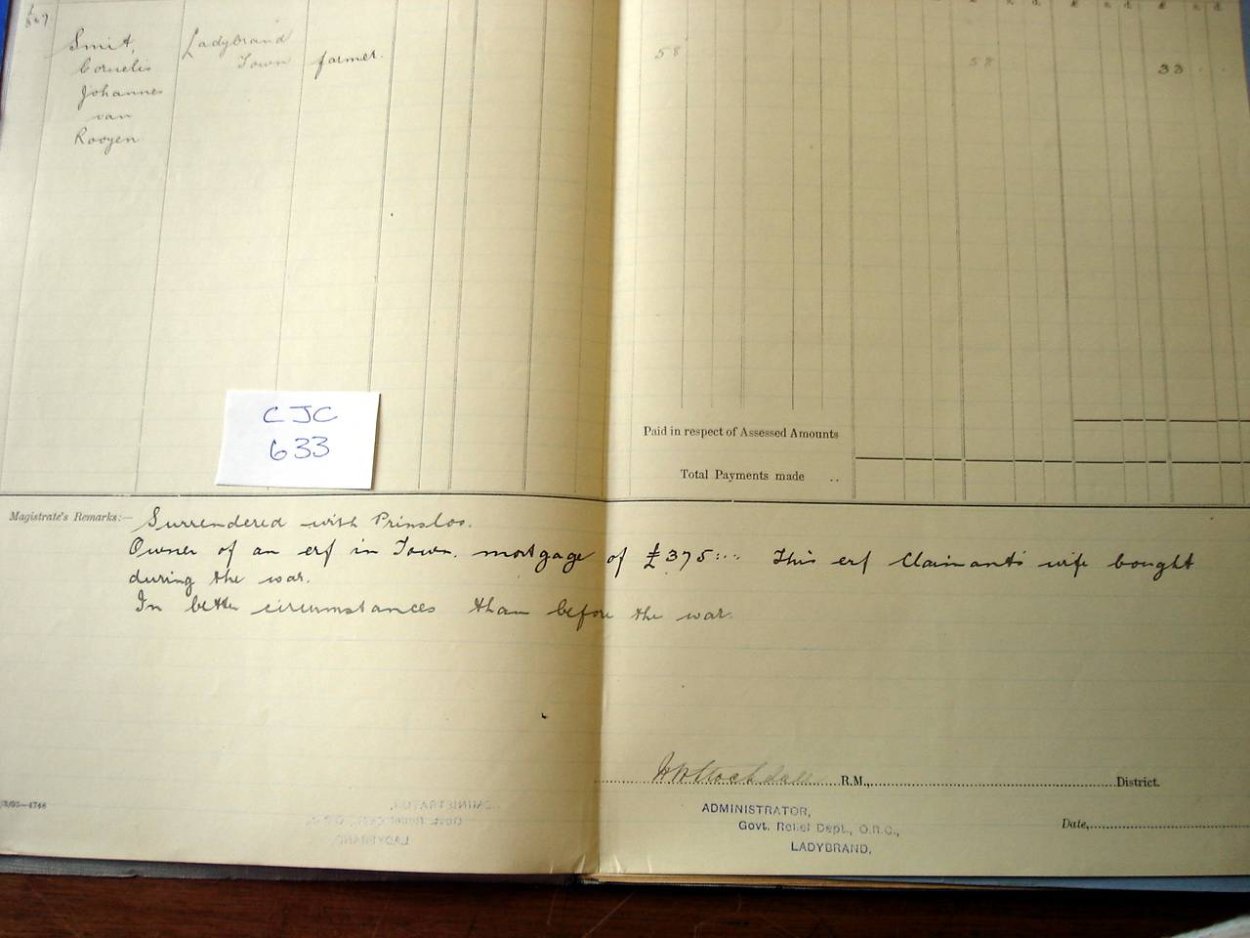 Smit, Ladybrand
Cornelis Town farmer. 58 58 33
Johannes
van
Rooyen
CJC
633
Paid in respect of Assessed Amounts
Total Payments made ..
Magistrate's Remarks:— Surrendered with Prinsloo.
Owner of an erf in Town. mortgage of £375:-:- This erf Claimants wife bought
during the war.
In better circumstances than before the war.
R.M., District.
ADMINISTRATOR,
Govt. Relief Dept., O.R.C.,
LADYBRAND.
Date,